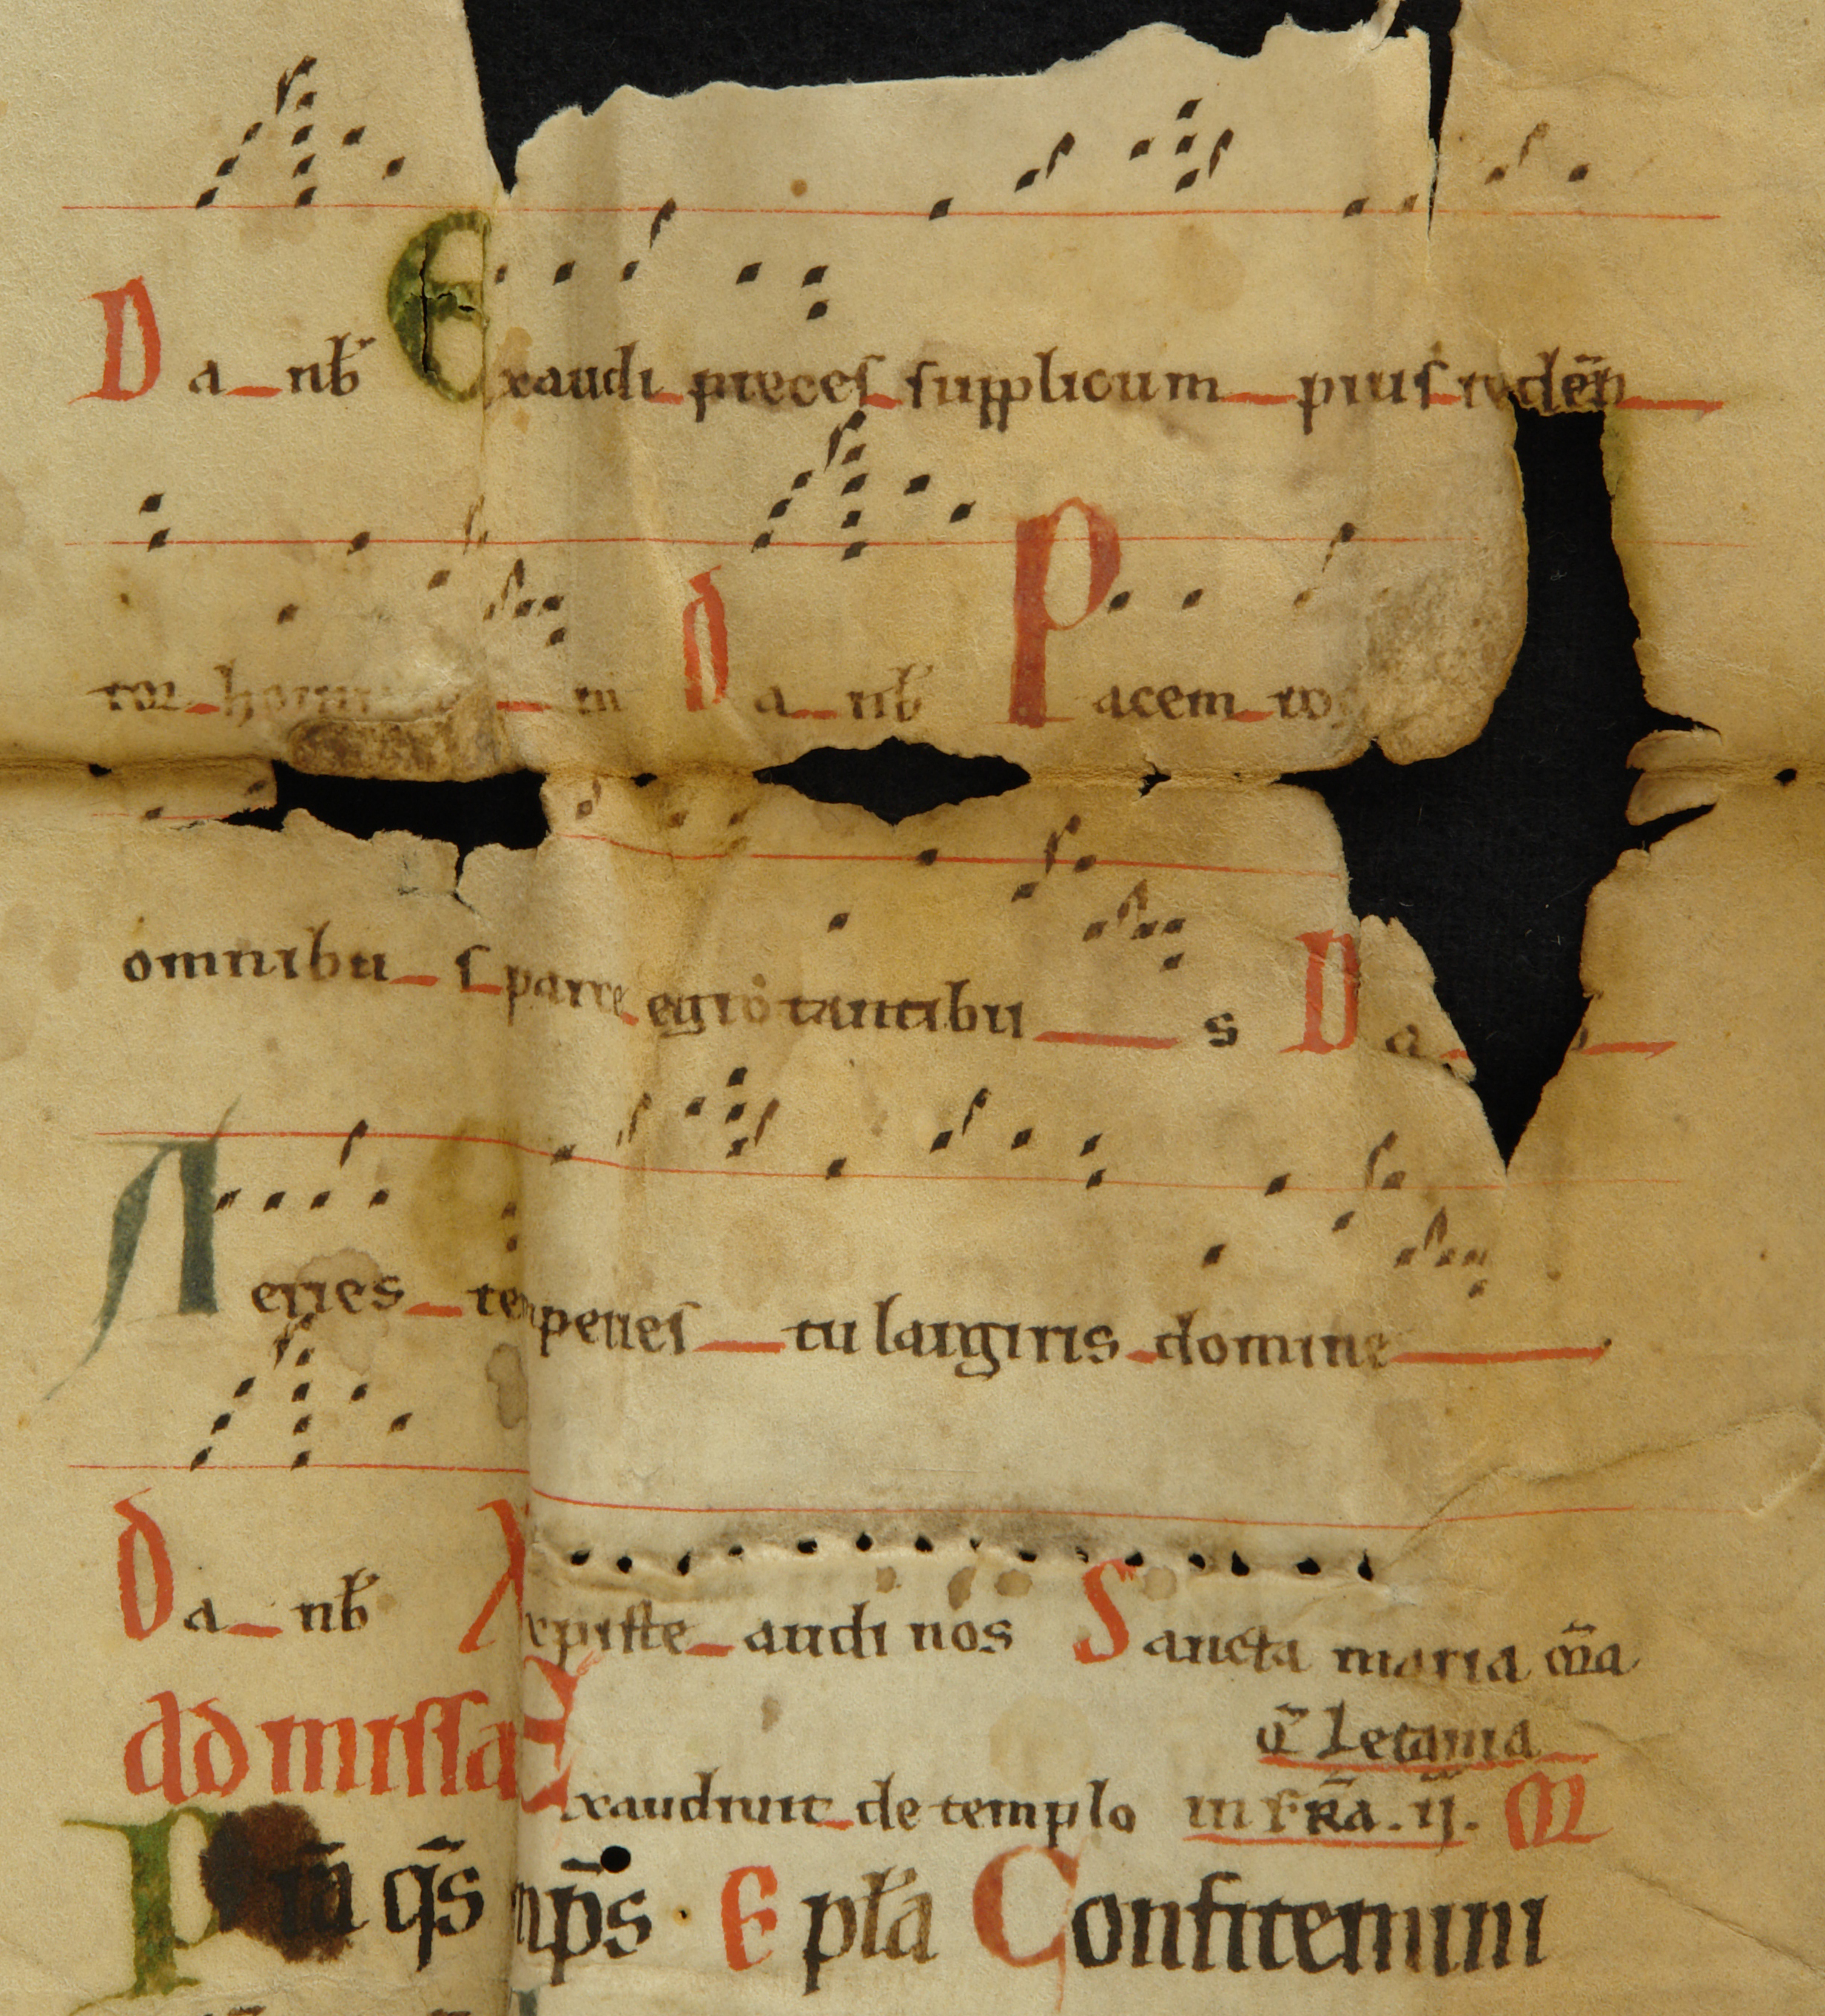 Da_nb̄ Exaudi_preces_supplicum_pius_redēp_
tor_homi _ni Da_nb̄ Pacem_ro
omnibu_s_parce_egrotantibu_s Da_
Aeries_temperies_tu largiris_domine_
Da_nb̄ Xpiste_audi nos Sancta maria om̄a
dd missa Exaudiuit_de templo ū letania
in FRA. ij. M
q̄s mp̄s · E pła Confitemini